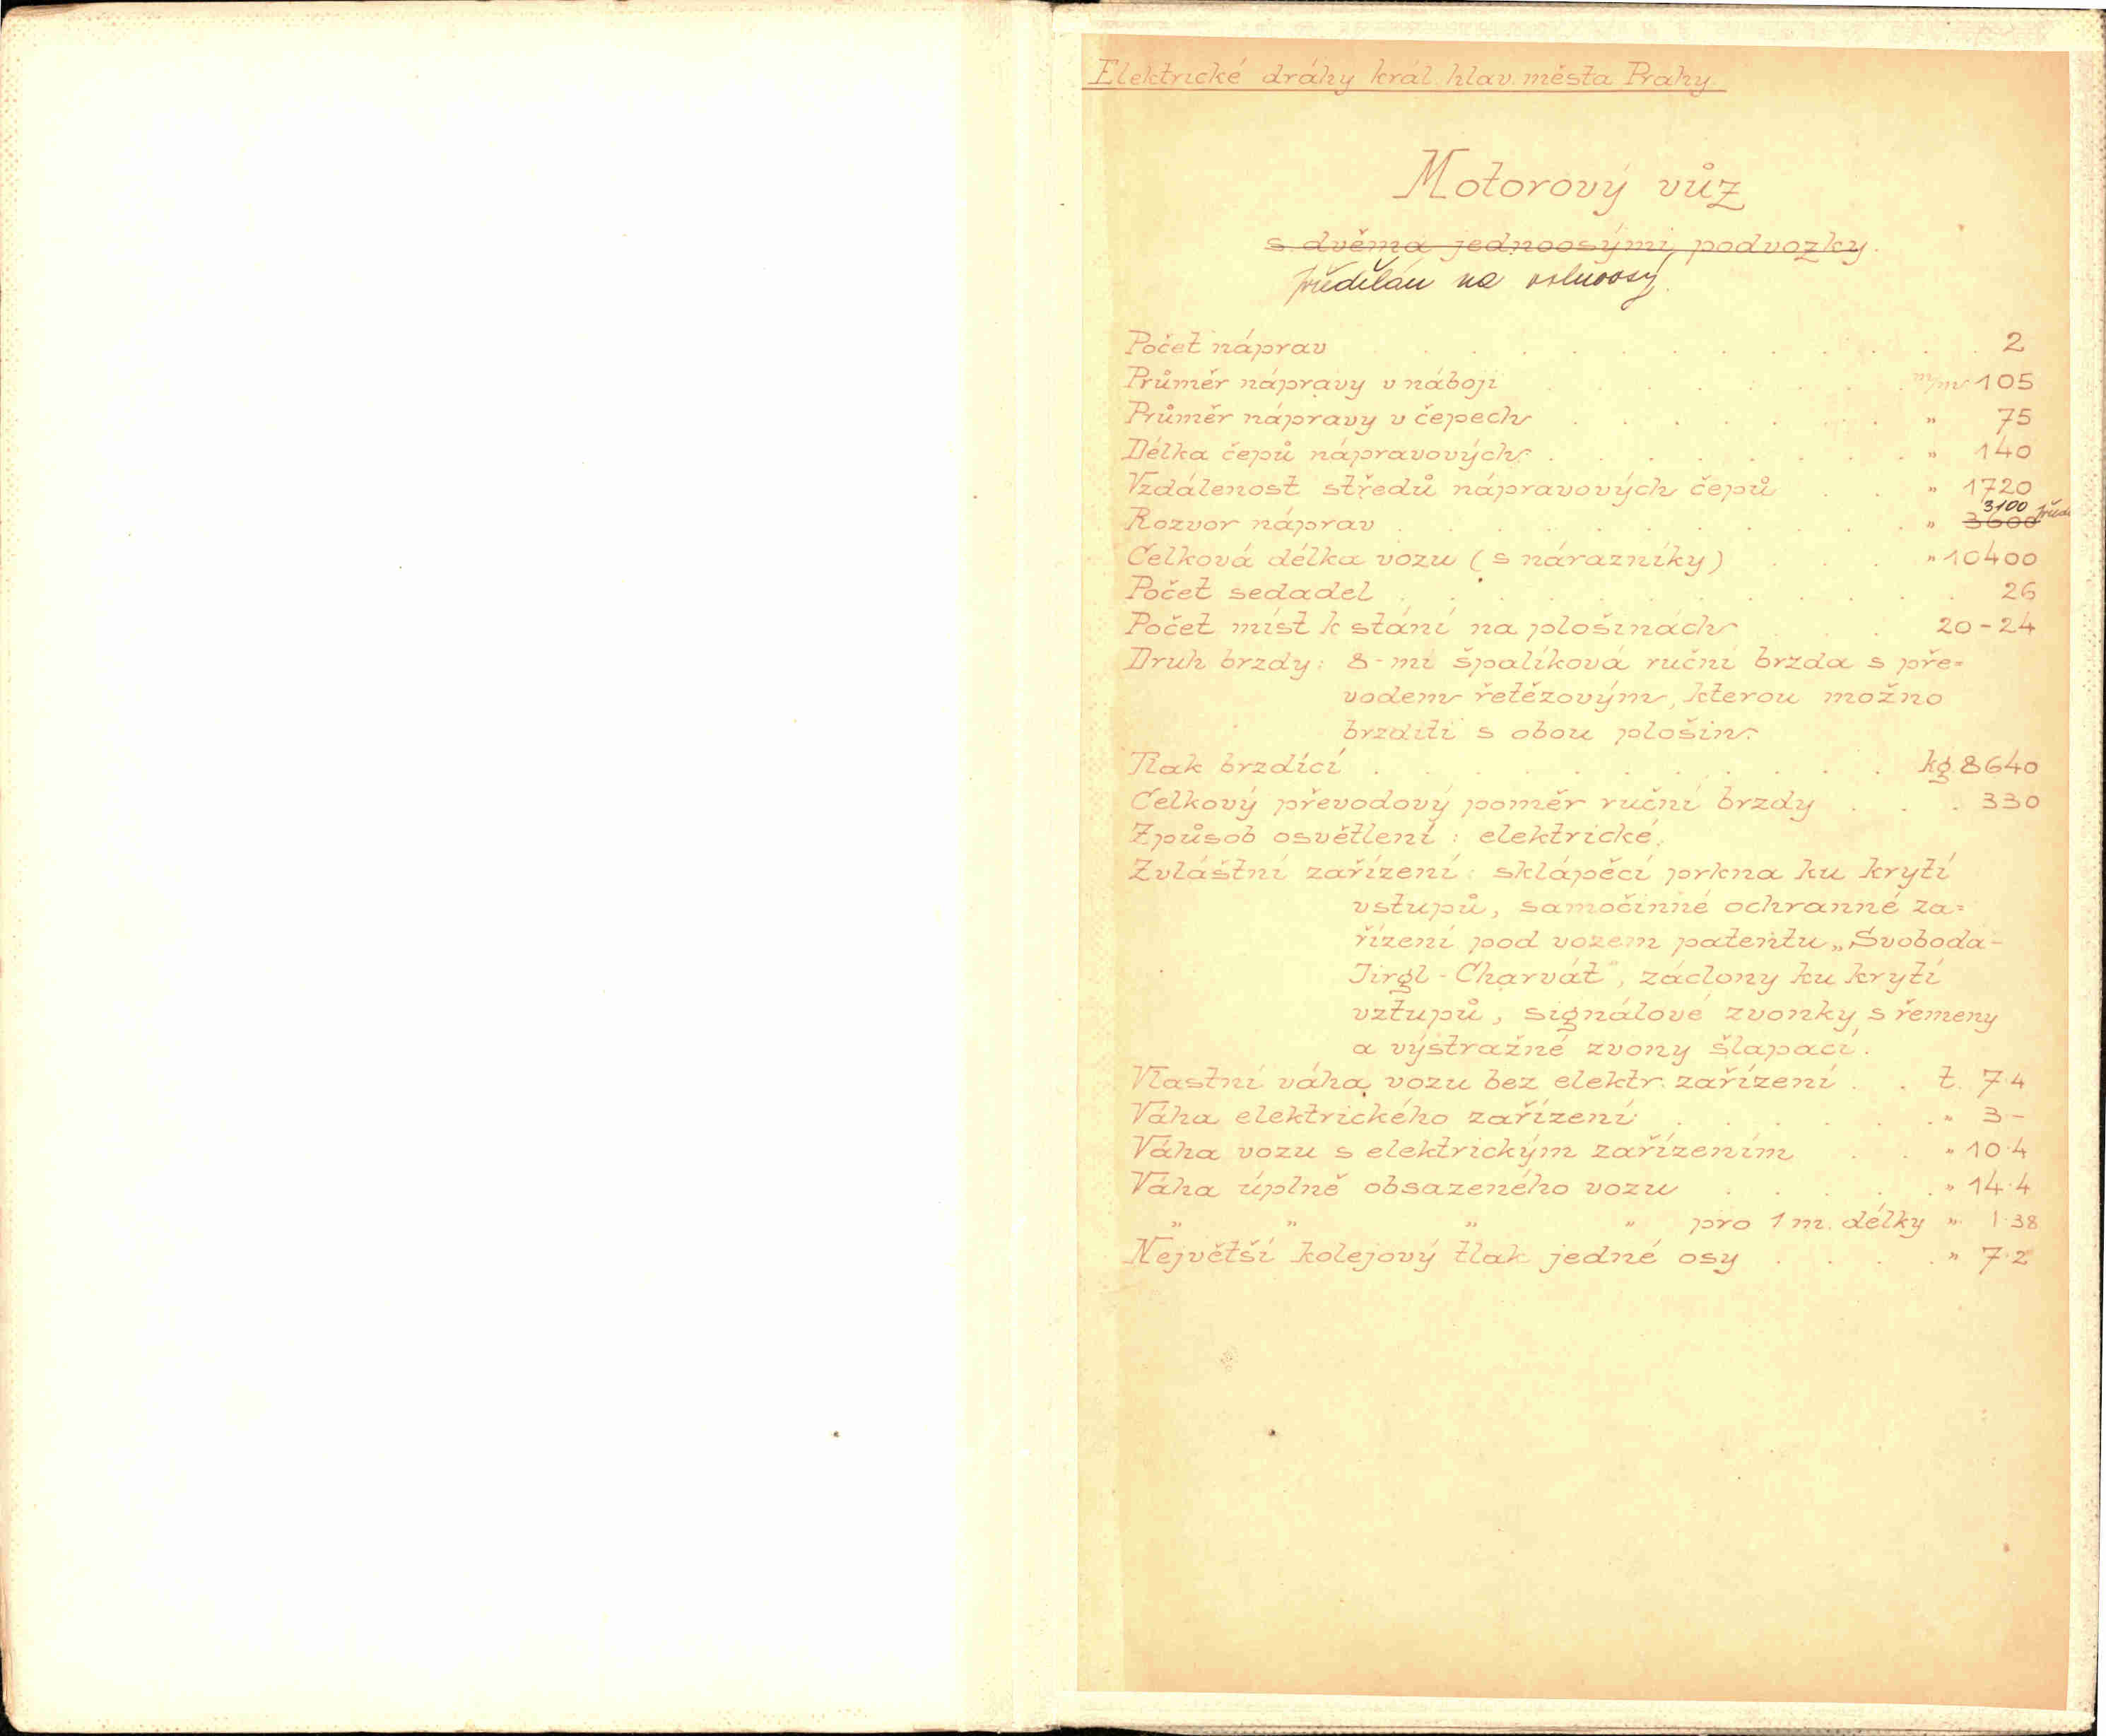 Elektrické dráhy král. hlav. města Prahy.
Motorový vůz
s dvěma jednoosými podvozky.
předělán na volnoosý.
Počet náprav . . . . . . . . . . . . 2
Průměr nápravy v náboji . . . . . . . . m/m 105
Průměr nápravy v čepech . . . . . . . „ 75
Délka čepů nápravových . . . . . . . . „ 140
Vzdálenost středů nápravových čepů . . „ 1720
3100 před
Rozvor náprav . . . . . . . . . . . „ 3600
Celková délka vozu (s nárazníky) . . . „ 10400
Počet sedadel . . . . . . . . . . . . 26
Počet míst k stání na plošinách . . . 20-24
Druh brzdy: 8-mi špalíková ruční brzda s pře=
vodem řetězovým, kterou možno
brzditi s obou plošin.
Tlak brzdící . . . . . . . . . . . kg. 8640
Celkový převodový poměr ruční brzdy . . . 330
Způsob osvětlení: elektrické.
Zvláštní zařízení: sklápěcí prkna ku krytí
vstupů, samočinné ochranné za=
řízení pod vozem patentu „Svoboda-
Jirgl-Charvát", záclony ku krytí
vztupů, signálové zvonky s řemeny
a výstražné zvony šlapací.
Vlastní váha vozu bez elektr. zařízení . . t. 7·4
Váha elektrického zařízení . . . . . . „ 3·-
Váha vozu s elektrickým zařízením . . „ 10·4
Váha úplně obsazeného vozu . . . . . „ 14·4
„ „ „ „ pro 1 m. délky „ 1·38
Největší kolejový tlak jedné osy . . . . „ 7·2